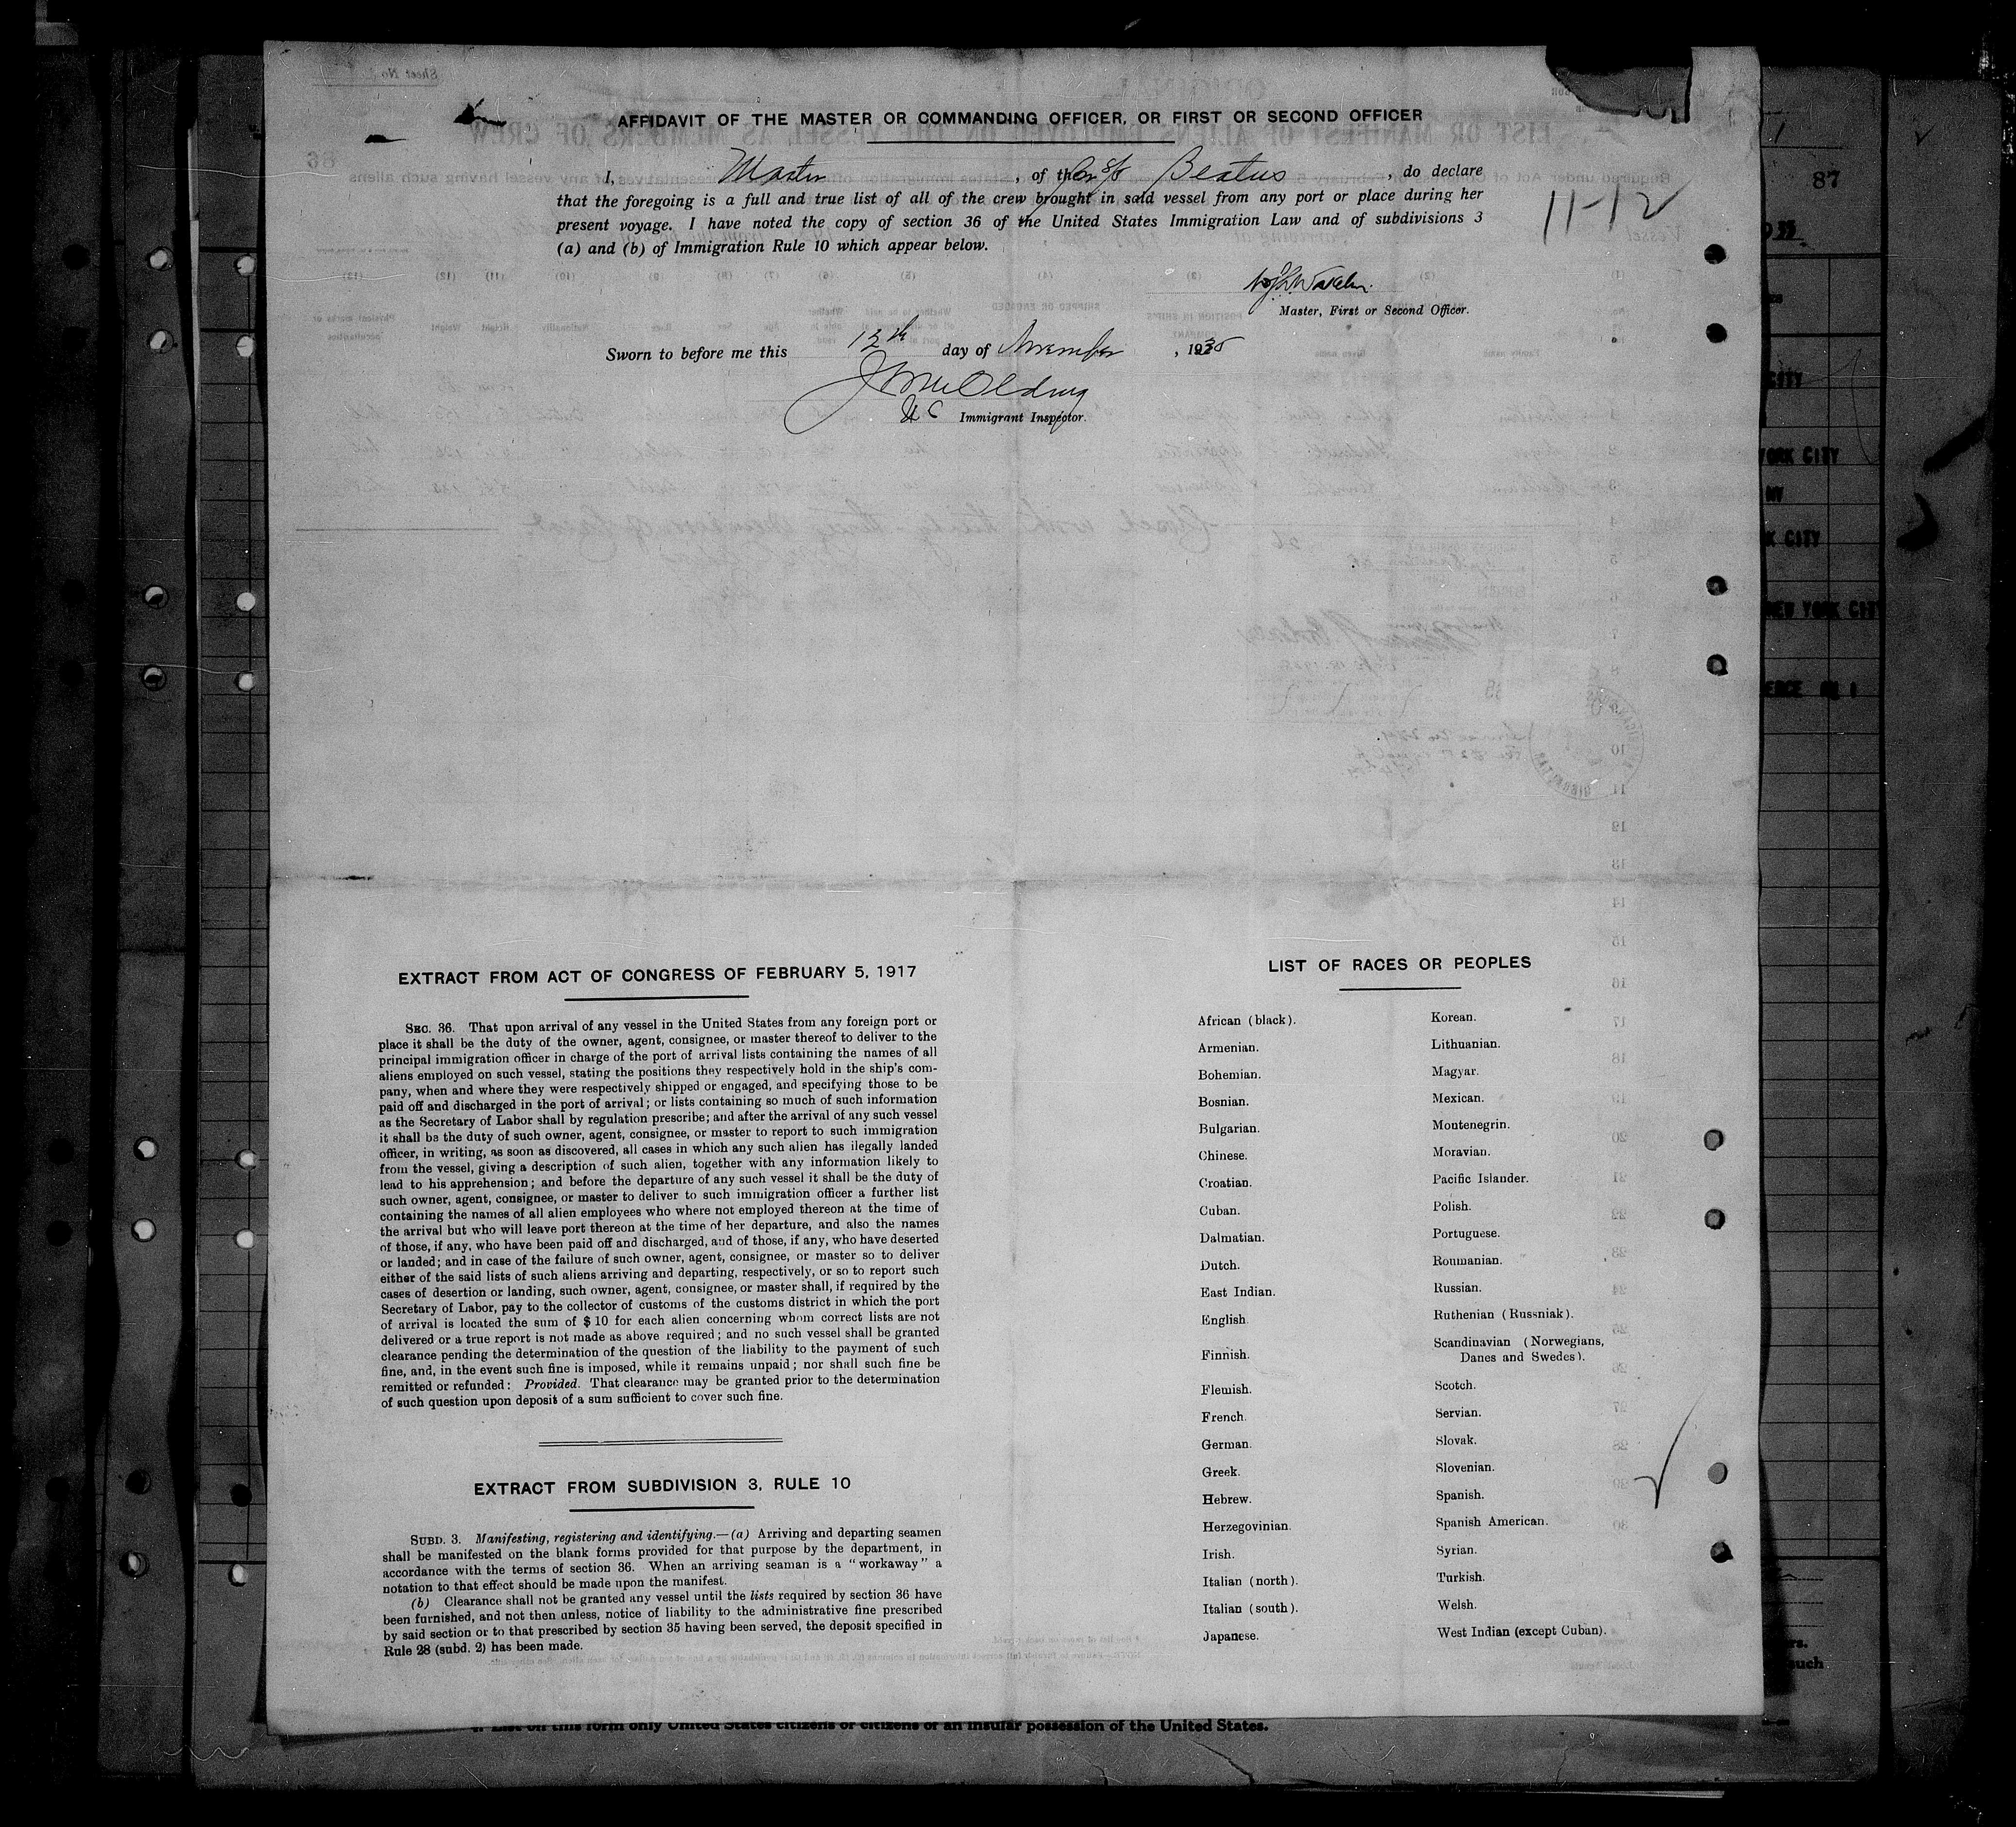 AFFIDAVIT OF THE MASTER OR COMMANDING OFFICER, OR FIRST OR SECOND OFFICER
I, Master, of the Br S/S Beatus, do declare
that the foregoing is a full and true list of all of the crew brought in said vessel from any port or place during her
present voyage. I have noted the copy of section 36 of the United States Immigration Law and of subdivisions 3
(a) and (b) of Immigration Rule 10 which appear below.
11-12
87
Master, First or Second Officer.
Sworn to before me this 12th day of November, 1935
Immigrant Inspector.
CITY
YORK CITY
NY
K CITY
NEW YORK CITY
EXTRACT FROM ACT OF CONGRESS OF FEBRUARY 5, 1917
SEC. 36. That upon arrival of any vessel in the United States from any foreign port or
place it shall be the duty of the owner, agent, consignee, or master thereof to deliver to the
principal immigration officer in charge of the port of arrival lists containing the names of all
aliens employed on such vessel, stating the positions they respectively hold in the ship's com-
pany, when and where they were respectively shipped or engaged, and specifying those to be
paid off and discharged in the port of arrival; or lists containing so much of such information
as the Secretary of Labor shall by regulation prescribe; and after the arrival of any such vessel
it shall be the duty of such owner, agent, consignee, or master to report to such immigration
officer, in writing, as soon as discovered, all cases in which any such alien has ilegally landed
from the vessel, giving a description of such alien, together with any information likely to
lead to his apprehension; and before the departure of any such vessel it shall be the duty of
such owner, agent, consignee, or master to deliver to such immigration officer a further list
containing the names of all alien employees who where not employed thereon at the time of
the arrival but who will leave port thereon at the time of her departure, and also the names
of those, if any, who have been paid off and discharged, and of those, if any, who have deserted
or landed; and in case of the failure of such owner, agent, consignee, or master so to deliver
either of the said lists of such aliens arriving and departing, respectively, or so to report such
cases of desertion or landing, such owner, agent, consignee, or master shall, if required by the
Secretary of Labor, pay to the collector of customs of the customs district in which the port
of arrival is located the sum of $ 10 for each alien concerning whom correct lists are not
delivered or a true report is not made as above required; and no such vessel shall be granted
clearance pending the determination of the question of the liability to the payment of such
fine, and, in the event such fine is imposed, while it remains unpaid; nor shall such fine be
remitted or refunded: Provided. That clearance may be granted prior to the determination
of such question upon deposit of a sum sufficient to cover such fine.
EXTRACT FROM SUBDIVISION 3, RULE 10
SUBD. 3. Manifesting, registering and identifying.—(a) Arriving and departing seamen
shall be manifested on the blank forms provided for that purpose by the department, in
accordance with the terms of section 36. When an arriving seaman is a "workaway" a
notation to that effect should be made upon the manifest.
(b) Clearance shall not be granted any vessel until the lists required by section 36 have
been furnished, and not then unless, notice of liability to the administrative fine prescribed
by said section or to that prescribed by section 35 having been served, the deposit specified in
Rule 28 (subd. 2) has been made.
LIST OF RACES OR PEOPLES
African (black).
Armenian.
Bohemian.
Bosnian.
Bulgarian.
Chinese.
Croatian.
Cuban.
Dalmatian.
Dutch.
East Indian.
English.
Finnish.
Flemish.
French.
German.
Greek.
Hebrew.
Herzegovinian.
Irish.
Italian (north).
Italian (south).
Japanese.
Korean.
Lithuanian.
Magyar.
Mexican.
Montenegrin.
Moravian.
Pacific Islander.
Polish.
Portuguese.
Roumanian.
Russian.
Ruthenian (Russniak).
Scandinavian (Norwegians,
Danes and Swedes).
Scotch.
Servian.
Slovak.
Slovenian.
Spanish.
Spanish American.
Syrian.
Turkish.
Welsh.
West Indian (except Cuban).
List on this form only United States citizens or citizens of an insular possession of the United States.